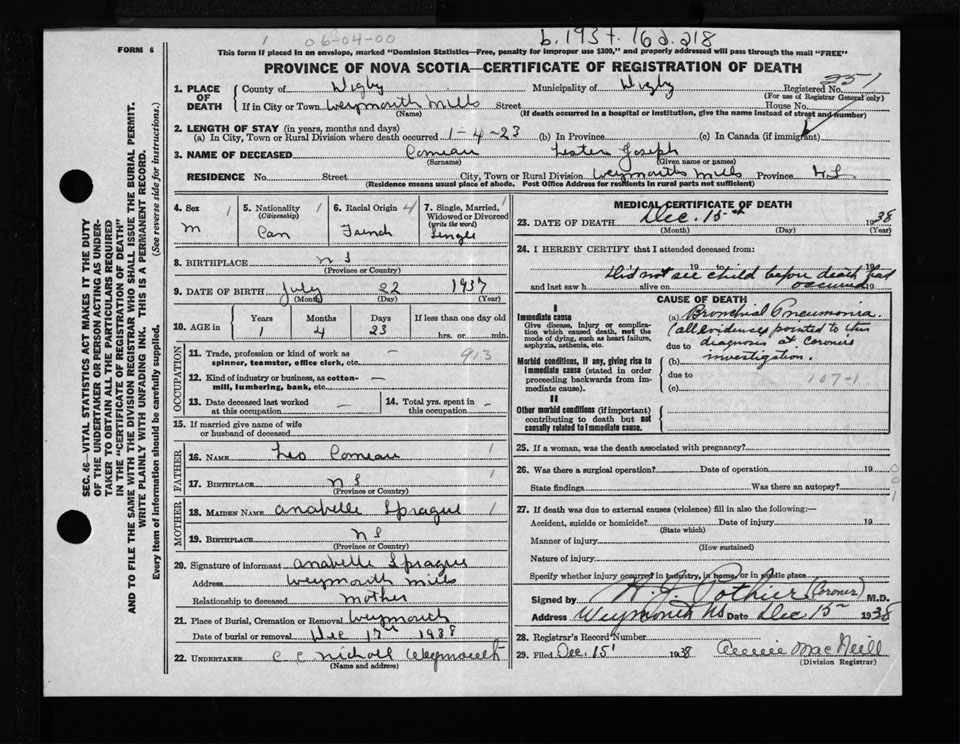 1 06-04-00 b. 1937. 16d. 218
FORM 6
This form if placed in an envelope, marked "Dominion Statistics—Free, penalty for improper use $300," and properly addressed will pass through the mail "FREE"
PROVINCE OF NOVA SCOTIA—CERTIFICATE OF REGISTRATION OF DEATH
1. PLACE OF DEATH
County of Digby Municipality of Digby Registered No. 251
(For use of Registrar General only)
If in City or Town Weymouth Mills Street House No.
(Name) (If death occurred in a hospital or institution, give the name instead of street and number)
2. LENGTH OF STAY (in years, months and days)
(a) In City, Town or Rural Division where death occurred 1-4-23 (b) In Province (c) In Canada (if immigrant)
3. NAME OF DECEASED Comeau Lester Joseph
(Surname) (Given name or names)
RESIDENCE No. Street City, Town or Rural Division Weymouth Mills Province N.S
(Residence means usual place of abode. Post Office Address for residents in rural parts not sufficient)
4. Sex 1
m
5. Nationality 1
(Citizenship)
Can
6. Racial Origin 4
French
7. Single, Married, 1
Widowed or Divorced
(write the word)
Single
8. BIRTHPLACE N S
(Province or Country)
9. DATE OF BIRTH July 22 1937
(Month) (Day) (Year)
10. AGE in
Years Months Days If less than one day old
1 4 23 hrs. or min.
OCCUPATION
11. Trade, profession or kind of work as — 913
spinner, teamster, office clerk, etc.
12. Kind of industry or business, as cotton- —
mill, lumbering, bank, etc.
13. Date deceased last worked — 14. Total yrs. spent in —
at this occupation this occupation
15. If married give name of wife
or husband of deceased
FATHER
16. NAME Leo Comeau 1
17. BIRTHPLACE N S 1
(Province or Country)
MOTHER
18. MAIDEN NAME Anabelle Sprague 1
19. BIRTHPLACE N S
(Province or Country)
20. Signature of informant Anabelle Sprague
Address Weymouth Mills
Relationship to deceased Mother
21. Place of Burial, Cremation or Removal Weymouth
Date of burial or removal Dec 17th 1938
22. UNDERTAKER C C Nicholl Weymouth
(Name and address)
MEDICAL CERTIFICATE OF DEATH
23. DATE OF DEATH Dec. 15th 1938
(Month) (Day) (Year)
24. I HEREBY CERTIFY that I attended deceased from:
19 to 19
Did not see child before death had
and last saw h alive on occurred 19
CAUSE OF DEATH
I
Immediate cause
Give disease, injury or complication which caused death, not the mode of dying, such as heart failure, asphyxia, asthenia, etc.
Morbid conditions, if any, giving rise to immediate cause (stated in order proceeding backwards from immediate cause).
II
Other morbid conditions (if important) contributing to death but not causally related to immediate cause.
(a) Bronchial Pneumonia.
(all evidences pointed to this
due to diagnosis at Coroners
(b) investigation.
due to 107-1
(c)
25. If a woman, was the death associated with pregnancy?
26. Was there a surgical operation? Date of operation 19
State findings Was there an autopsy?
27. If death was due to external causes (violence) fill in also the following:—
Accident, suicide or homicide? Date of injury 19
(State which)
Manner of injury
(How sustained)
Nature of injury
Specify whether injury occurred in industry, in home, or in public place
Signed by H. J. Pothier (Coroner) M.D.
Address Weymouth NS Date Dec. 15th 1938
28. Registrar's Record Number
29. Filed Dec. 15' 1938 Annie MacNeill
(Division Registrar)
SEC. 46—VITAL STATISTICS ACT MAKES IT THE DUTY
OF THE UNDERTAKER OR PERSON ACTING AS UNDER-
TAKER TO OBTAIN ALL THE PARTICULARS REQUIRED
IN THE "CERTIFICATE OF REGISTRATION OF DEATH"
AND TO FILE THE SAME WITH THE DIVISION REGISTRAR WHO SHALL ISSUE THE BURIAL PERMIT.
WRITE PLAINLY WITH UNFADING INK. THIS IS A PERMANENT RECORD.
Every item of information should be carefully supplied. (See reverse side for instructions.)